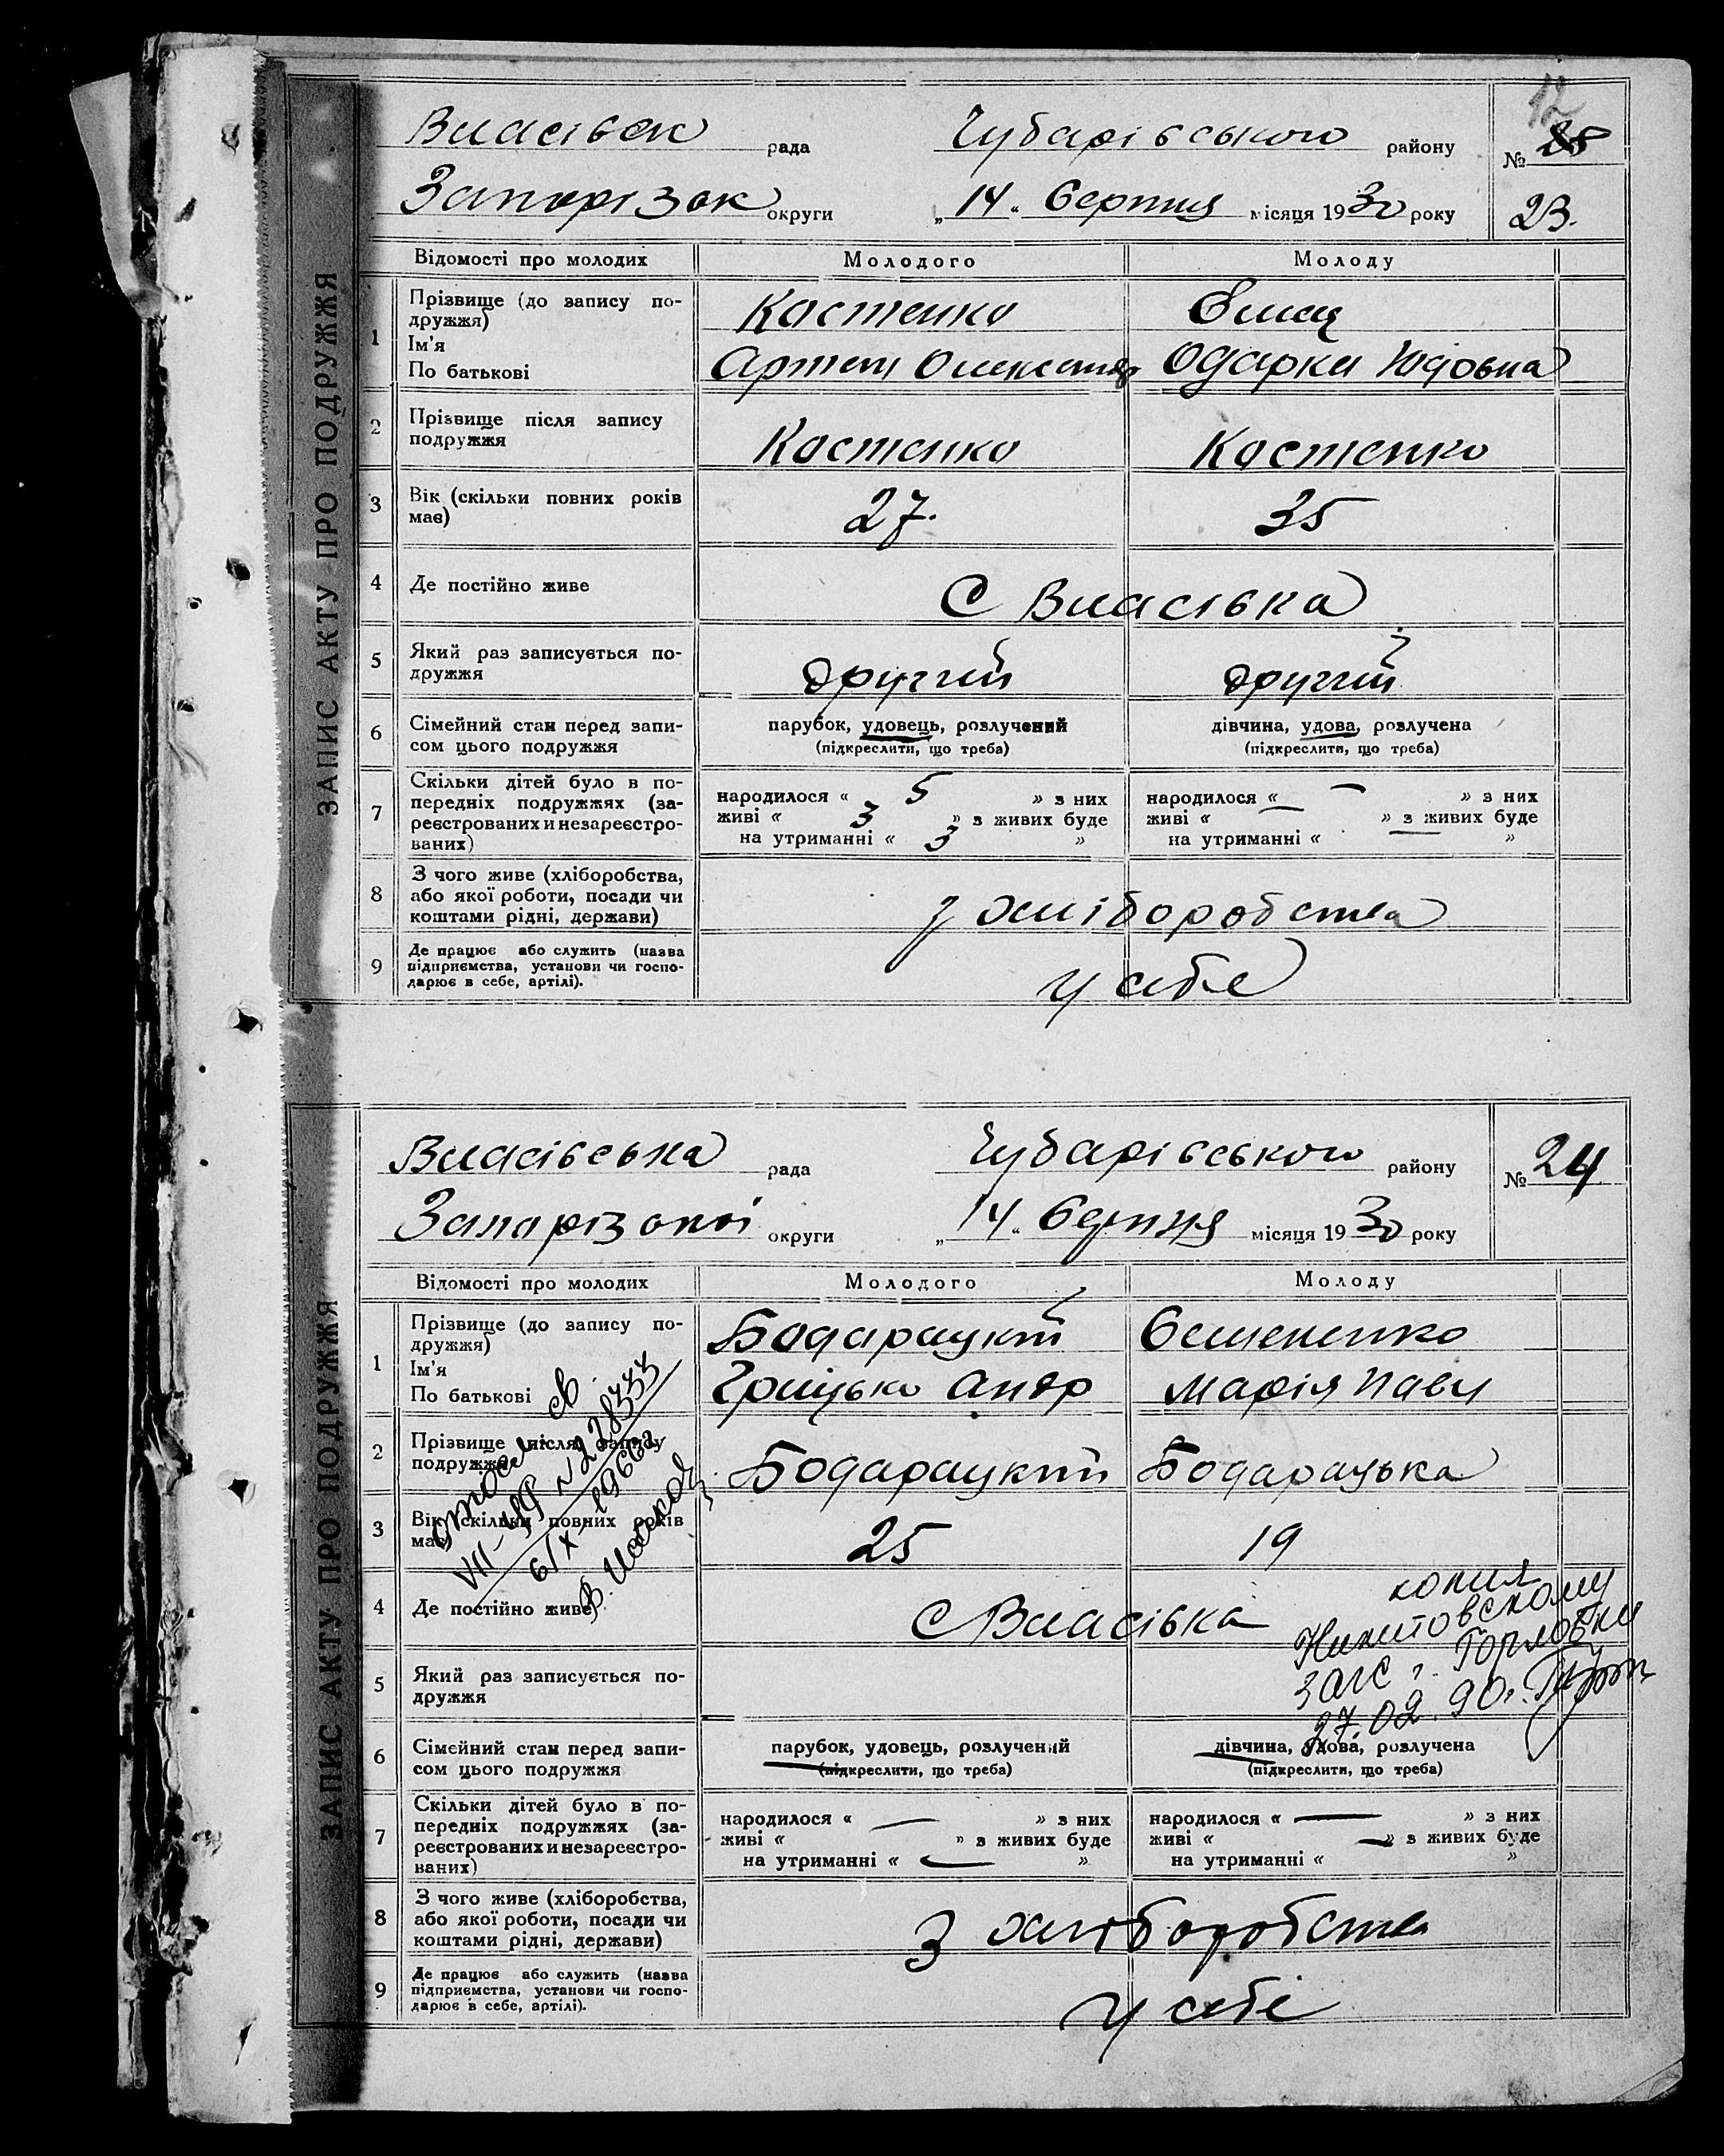 12
Власівск рада Чубарівського району № 23.
Запоріз ок округи „14“ Серпня місяця 1930 року
ЗАПИС АКТУ ПРО ПОДРУЖЖЯ
Відомості про молодих Молодого Молоду
1 Прізвище (до запису по-
дружжя) Костенко
Ім'я
По батькові Артем Олександр Одарка Юдовна
2 Прізвище після запису
подружжя Костенко Костенко
3 Вік (скільки повних років
має) 27. 35
4 Де постійно живе С Власівка
5 Який раз записується по-
дружжя другий другий
6 Сімейний стан перед запи-
сом цього подружжя
парубок, удовець, розлучений
(підкреслити, що треба)
дівчина, удова, розлучена
(підкреслити, що треба)
7 Скільки дітей було в по-
передніх подружжях (за-
реєстрованих и незареєстро-
ваних)
народилося « 5 » з них
живі « 3 » з живих буде
на утриманні « 3 »
народилося « — » з них
живі « — » з живих буде
на утриманні « — »
8 З чого живе (хліборобства,
або якої роботи, посади чи
коштами рідні, держави) з хліборобства
9 Де працює або служить (назва
підприємства, установи чи госпо-
дарює в себе, артілі). у себе
Власівська рада Чубарівського району № 24
Запорізокої округи „14“ Серпня місяця 1930 року
ЗАПИС АКТУ ПРО ПОДРУЖЖЯ
Відомості про молодих Молодого Молоду
1 Прізвище (до запису по-
дружжя) Бодарацкий Семененко
Ім'я
По батькові Грицько Андр Марія Павл
2 Прізвище після запису
подружжя Бодарацкий Бодарацька
3 Вік (скільки повних років
має) 25 19
4 Де постійно живе С Власівка
5 Який раз записується по-
дружжя
св.
VII-УР № 228444
6/X-1966г
копия
Никитовскому
загс г. Горловки
27.02.90г.
6 Сімейний стан перед запи-
сом цього подружжя
парубок, удовець, розлучений
(підкреслити, що треба)
дівчина, удова, розлучена
(підкреслити, що треба)
7 Скільки дітей було в по-
передніх подружжях (за-
реєстрованих и незареєстро-
ваних)
народилося « — » з них
живі « » з живих буде
на утриманні « — »
народилося « — » з них
живі « — » з живих буде
на утриманні « »
8 З чого живе (хліборобства,
або якої роботи, посади чи
коштами рідні, держави) З хліборобства
9 Де працює або служить (назва
підприємства, установи чи госпо-
дарює в себе, артілі). у себе